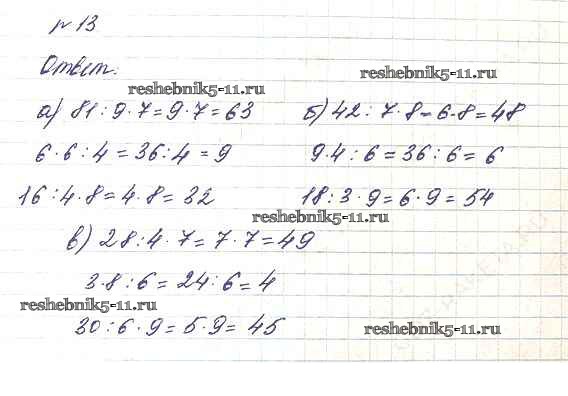 № 13
Ответ:
reshebnik5-11.ru
reshebnik5-11.ru
а) 81 : 9 · 7 = 9 · 7 = 63
б) 42 : 7 · 8 = 6 · 8 = 48
6 · 6 : 4 = 36 : 4 = 9
9 · 4 : 6 = 36 : 6 = 6
16 : 4 · 8 = 4 · 8 = 32
18 : 3 · 9 = 6 · 9 = 54
reshebnik5-11.ru
в) 28 : 4 · 7 = 7 · 7 = 49
3 · 8 : 6 = 24 : 6 = 4
reshebnik5-11.ru
30 : 6 · 9 = 5 · 9 = 45
reshebnik5-11.ru